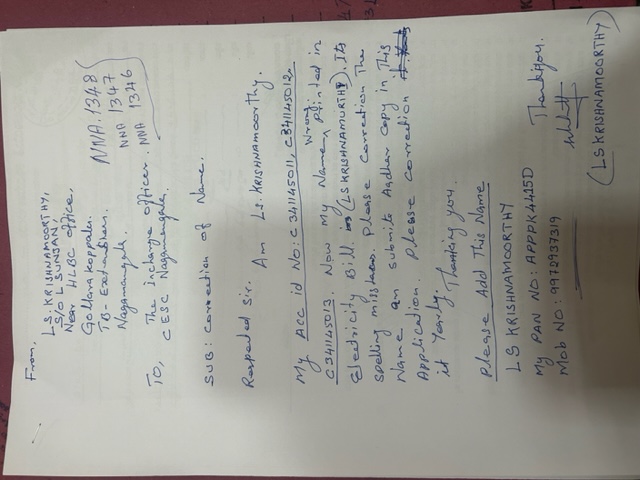 From.
LS. KRISHNAMOORTHY,
S/O L SUNJAN
Near HLBC office,
Gollara koppalu
TB. Extantion.
Nagamangala.
NNA. 1348
NNA 1347
NNA 1346
TO,
The incharge officer.
CESC Nagamangala.
SUB: Correction of Name.
Respeted Sir. Am LS. KRISHNAMOORTHY.
My Acc id No: C341145011, C341145012
C341145013. Now my Name, Wrong Printed in
Electricity Bill. (LS KRISHNAMURTHY). Its
spelling misstake. Please Correction the
Name an Submite Aadhar Copy in This
Application. Please Correction
it Yearly. Thanking you.
Please Add This Name
LS KRISHNAMOORTHY
My PAN NO: APPPK4415D
Mob NO: 9972937319
Thankyou.
(LS KRISHNAMOORTHY)